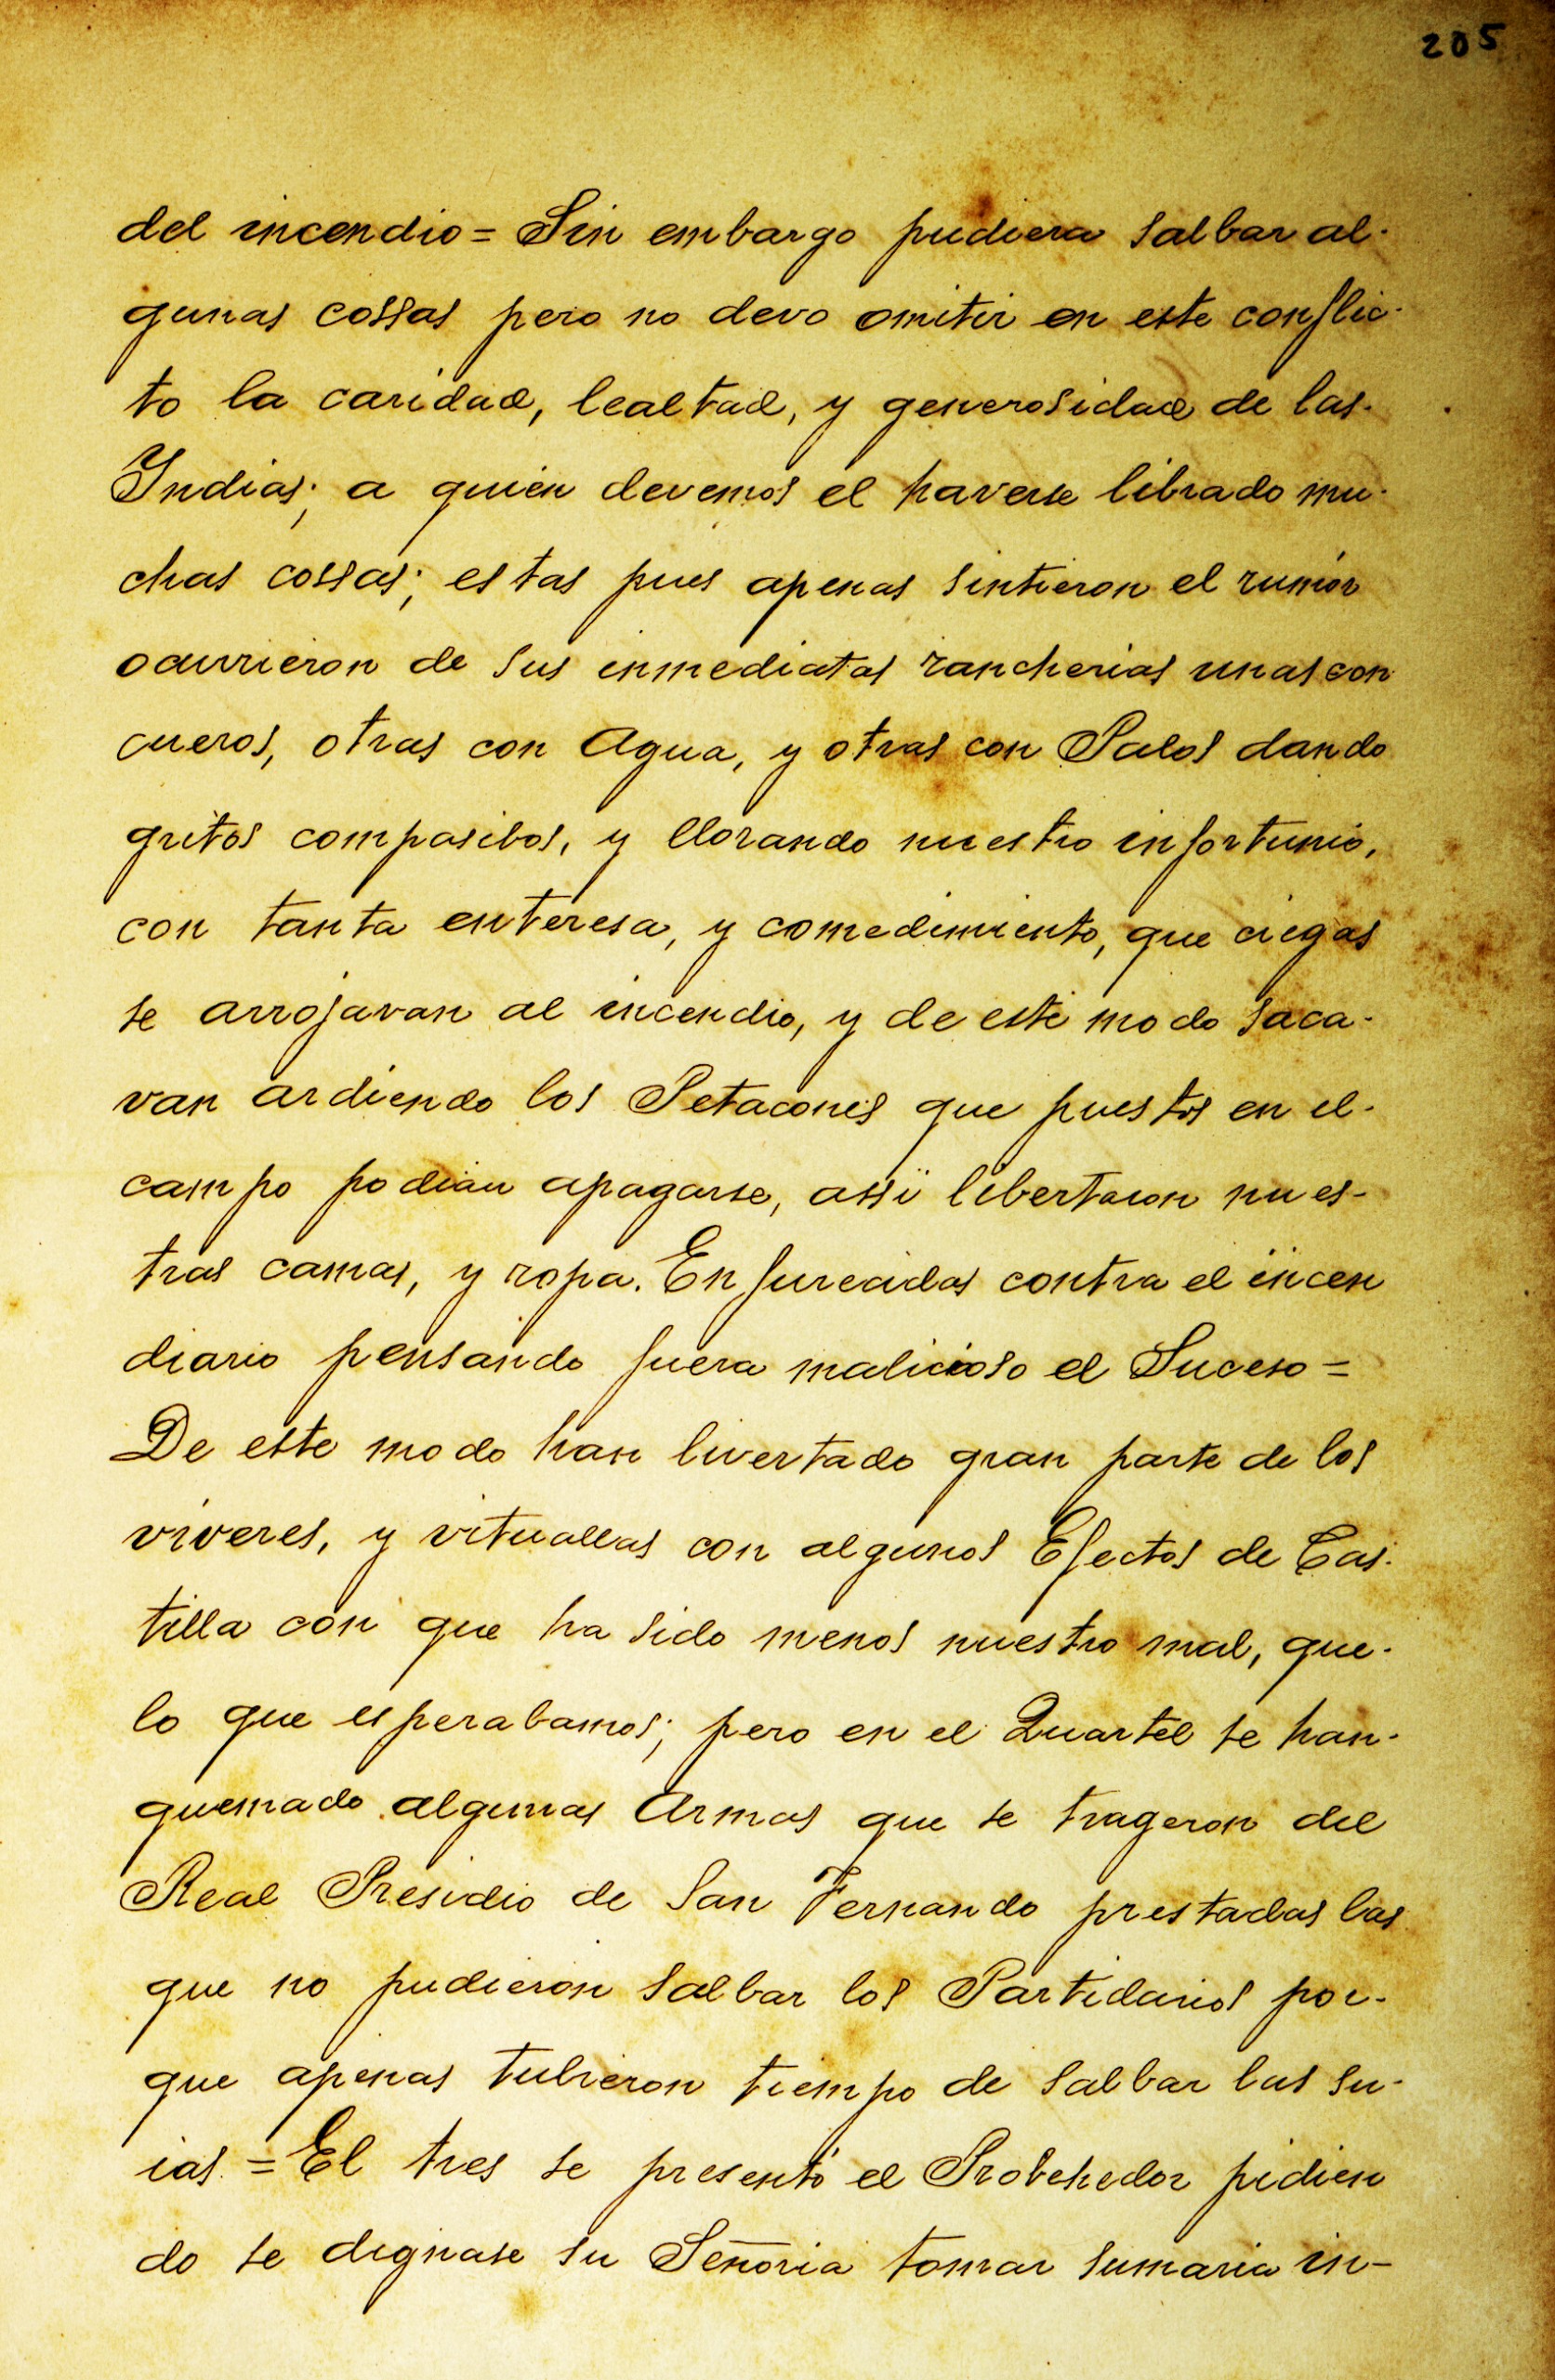 205
del incendio = Sin embargo pudiera salbar al-
gunas cossas pero no devo omitir en este conflic-
to la caridad, lealtad, y generosidad de las
Yndias; a quien devemos el haverse librado mu-
chas cossas; estas pues apenas sintieron el rumór
ocurrieron de sus inmediatas rancherias unas con
cueros, otras con Agua, y otras con Palos dando
gritos compasibos, y llorando nuestro infortunio,
con tanta enteresa, y comedimiento, que ciegas
se arrojavan al incendio, y de este modo saca-
van ardiendo los Petacones que puestos en el
campo podian apagarse, assi libertaron nues-
tras camas, y ropa. Enfurecidas contra el incen
diario pensando fuera malicioso el Suceso =
De este modo han livertado gran parte de los
viveres, y vituallas con algunos Efectos de Cas-
tilla con que ha sido menos nuestro mal, que
lo que esperabamos; pero en el Quartel se han
quemado algunas Armas que se trageron del
Real Presidio de San Fernando prestadas las
que no pudieron salbar los Partidarios por-
que apenas tubieron tiempo de salbar las su-
ias = El tres se presentó el Probehedor pidien
do se dignase su Señoria tomar sumaria in-